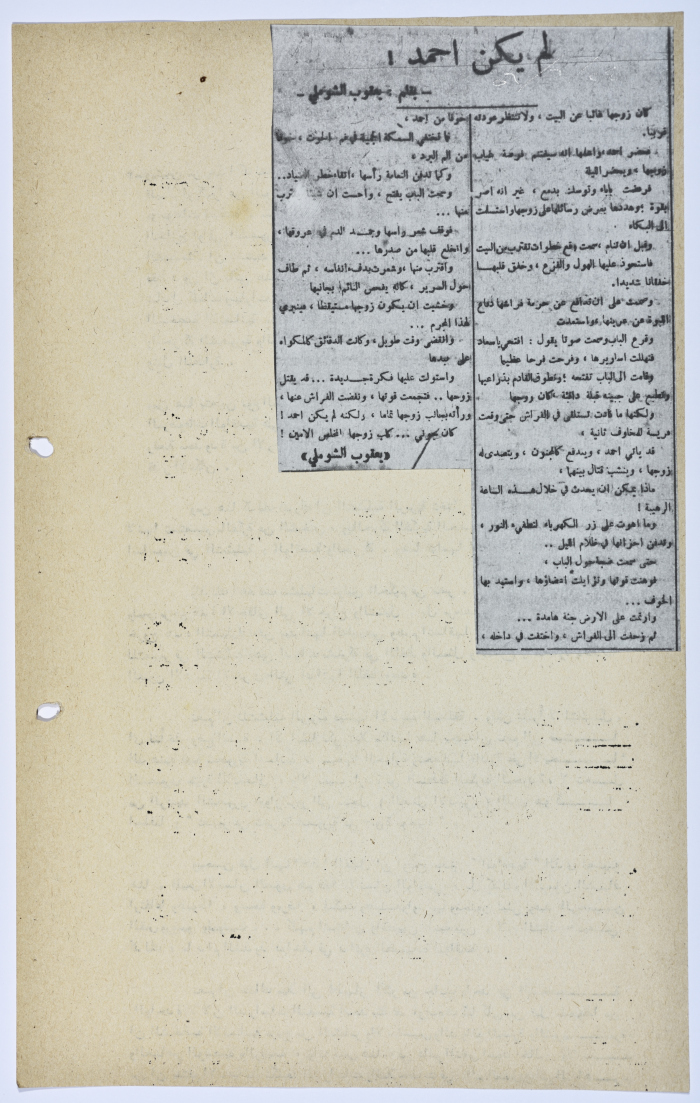 لم يكن احمد !
ـ بقلم : يعقوب الشوملي ـ
كان زوجها غائبا عن البيت ، ولا تنتظر عودته
قريبا.
يحضر احمد واعلمها انه سيغتنم فرصة غياب
زوجها ، ويحضر الليلة
فرفضت باباء وتوسلت بدمع ، غير انه اصر
بقوة وهددها بعرض رسائلها على زوجها واستسلمت
الى البكاء
وقبل ان تنام ، سمعت وقع خطوات تقترب من البيت
فاستحوذ عليها الهول والفزع ، وخفق قلبهـا
خفقانا شديدا.
وصممت على ان تدافع عن حرمة فراشها دفاع
اللبوة عن عرينها
وقرع الباب وسمعت صوتا يقول : افتحي يا سعاد
فتهللت اساريرها ، وفرحت فرحا عظيما
وقامت الى الباب تفتحه ! وتطوق القادم بذراعيها
وتطبع على جبينه قبلة دافئة ، كان زوجها
ولكنها ما كادت تستلقي في الفراش حتى وقعت
فريسة للمخاوف ثانية ،
قد ياتي احمد ، ويندفع كالمجنون ، ويتصدى له
زوجها ، وينشب قتال بينهما ،
ماذا يمكن ان يحدث في خلال هـذه الساعة
الرهيبة !
وما اهوت على زر الكهرباء لتطفيء النور ،
وتدفن احزانها في ظلام الليل ..
حتى سمعت ضجة حول الباب ،
فوهنت قوتها وتزايلت اعضاؤها ، واستبد بها
الخوف ...
وارتمت على الارض جثة هامدة ...
ثم زحفت الى الفراش ، واختفت في داخله ،
خوفا من احمد ،
كما تختفي السمكة في ، خوفا
من الم البرد ،
وكما تدفن النعامة رأسها ، اتقاء خطر الصياد..
وسمعت الباب يفتح ، واحست ان شيئا يقترب
منها ...
فوقف شعر راسها وجمـد الدم في عروقها ،
وانخلع قلبها من صدرها ...
واقترب منها ، وشعرت بدفء انفاسه ، ثم طاف
حول السرير ، كانه يفحص النائم بجانبها
وخشيت ان يكون زوجها مستيقظا ، فينبري
لهذا المجرم ...
وانقضى وقت طويل ، وكانت الدقائق كالمكواه
على جلدها
واستولت عليها فكرة جـديـدة ... قد يقتل
زوجها .. فتجمعت قوتها ، ونفضت الفراش عنها ،
ورأته بجانب زوجها تماما ، ولكنه لم يكن احمد !
كان ... كلب زوجها المخلص الامين !
«يعقوب الشوملي»